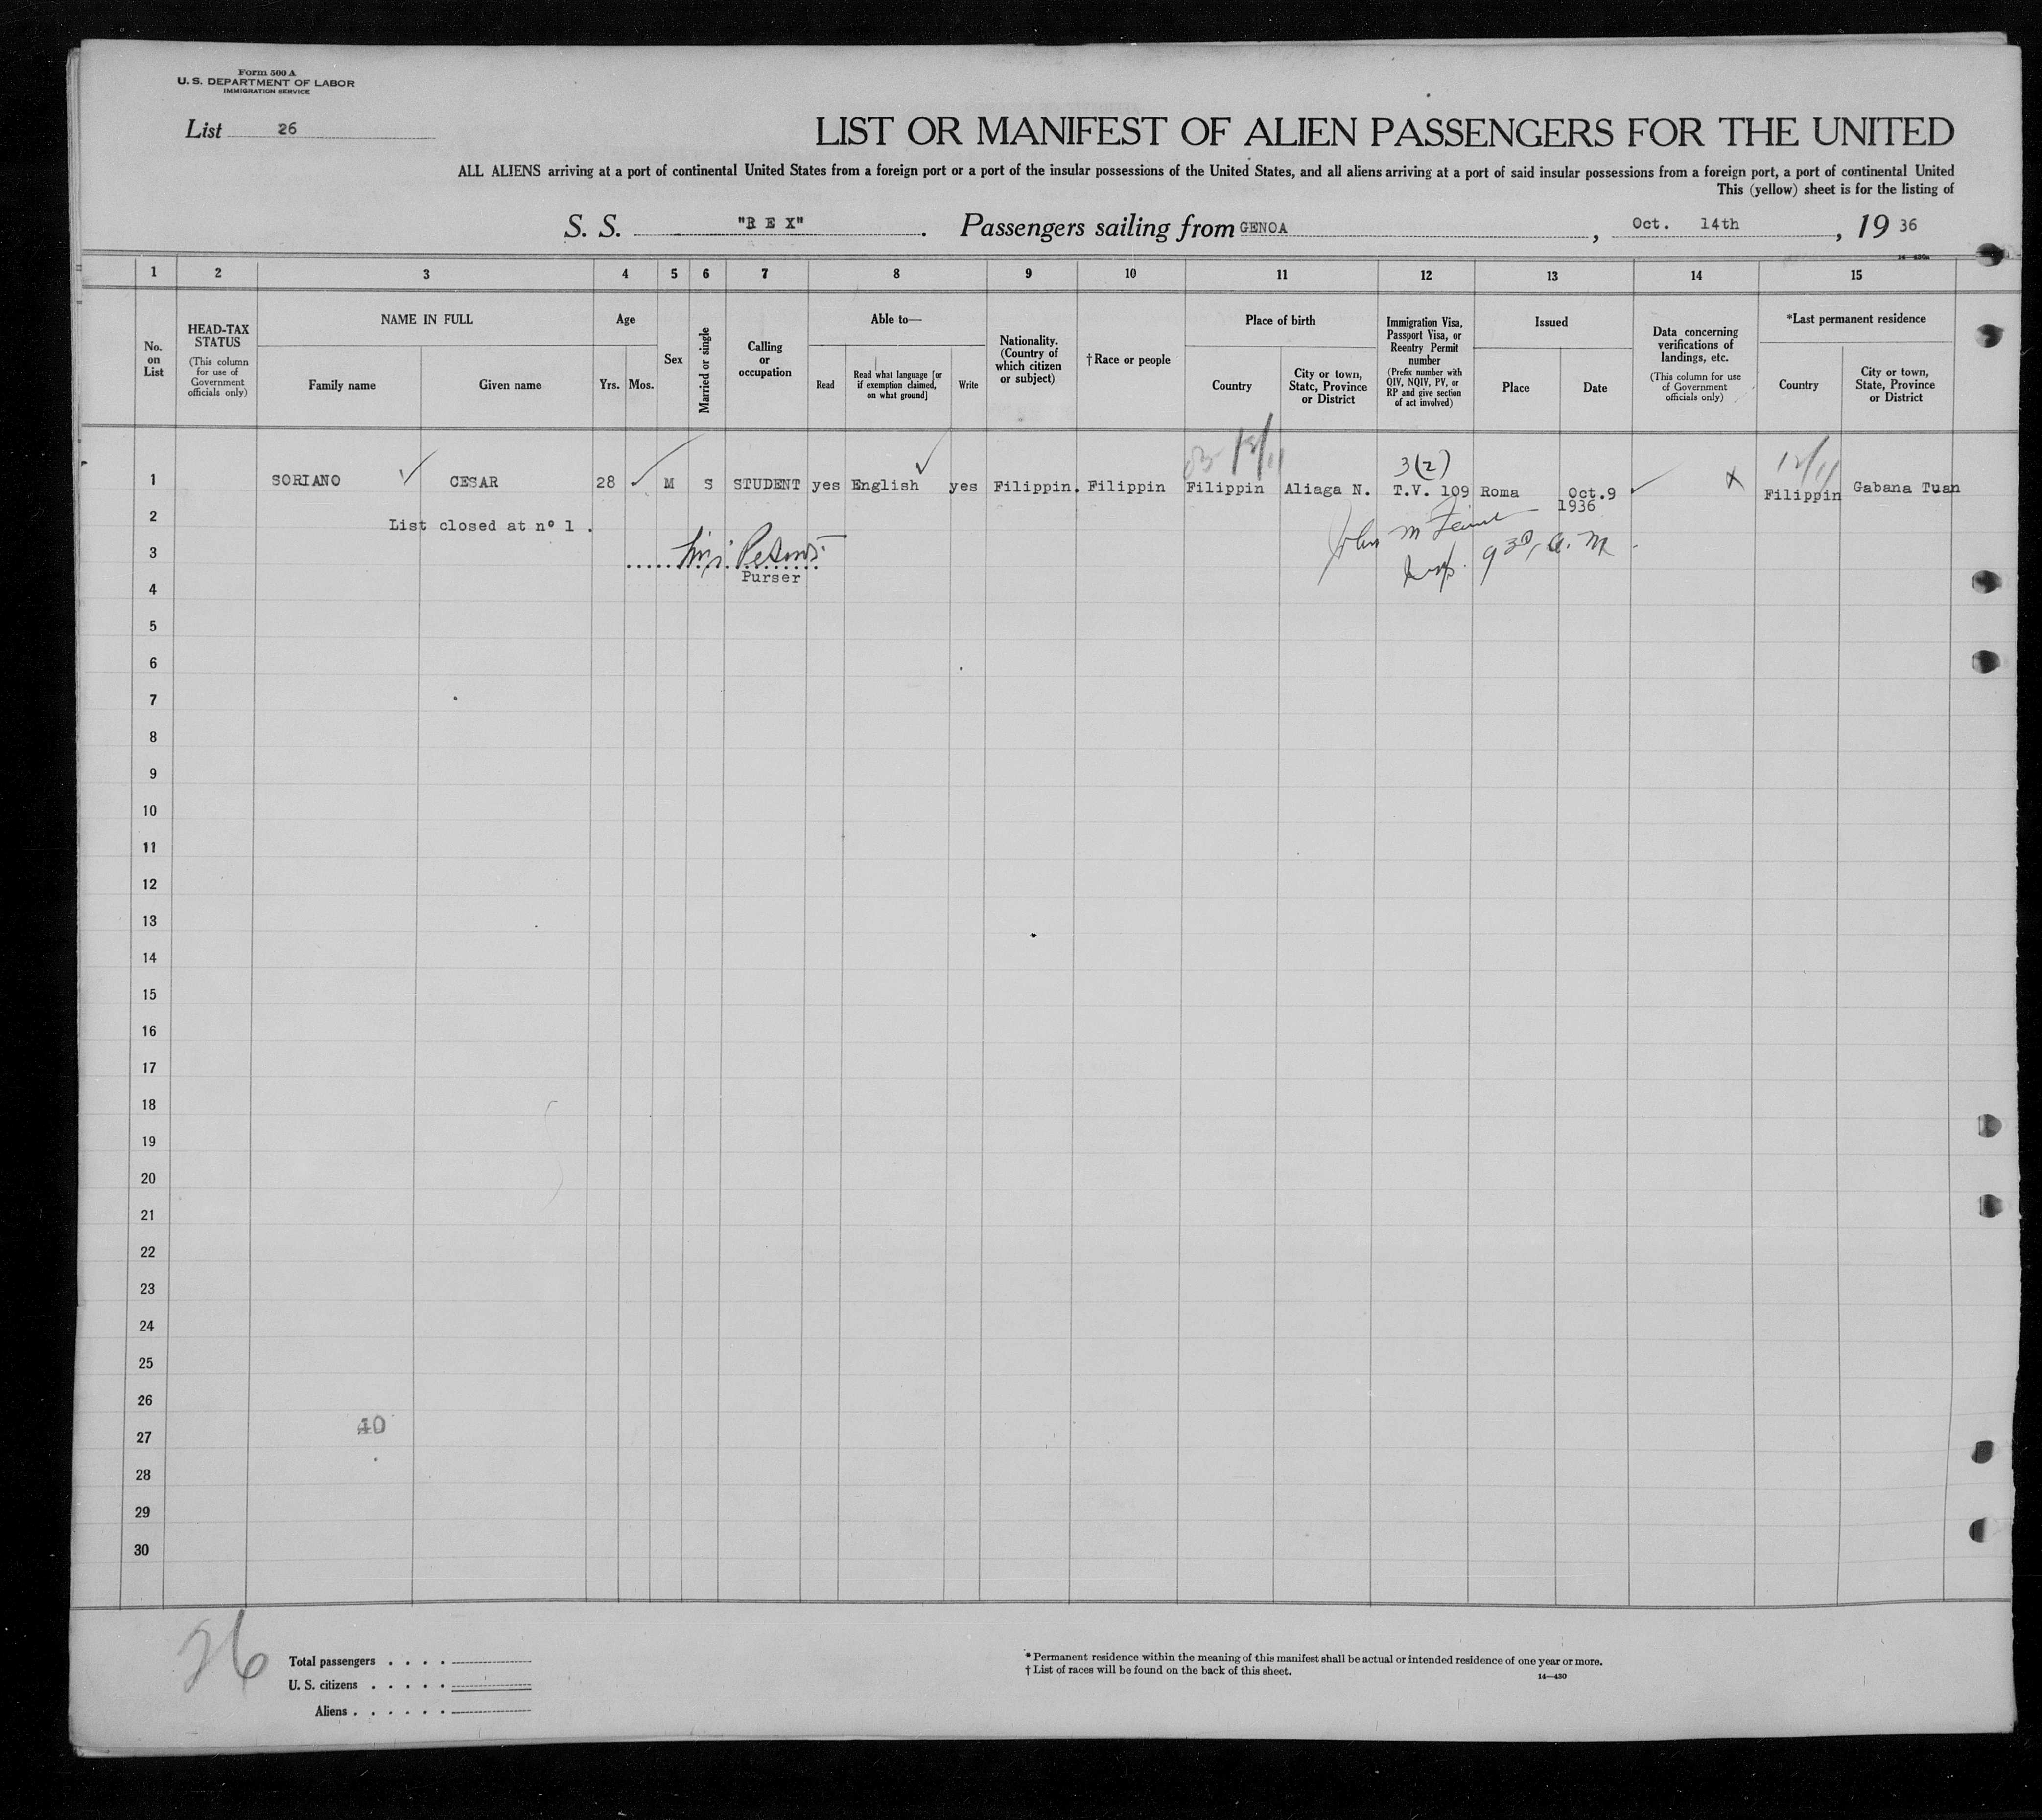 Form 500 A
U. S. DEPARTMENT OF LABOR
IMMIGRATION SERVICE
List 26
LIST OR MANIFEST OF ALIEN PASSENGERS FOR THE UNITED
ALL ALIENS arriving at a port of continental United States from a foreign port or a port of the insular possessions of the United States, and all aliens arriving at a port of said insular possessions from a foreign port, a port of continental United
This (yellow) sheet is for the listing of
S. S. "R E X". Passengers sailing from GENOA, Oct. 14th, 19 36
14—430a
1 2 3 4 5 6 7 8 9 10 11 12 13 14 15
No. on List
HEAD-TAX STATUS
(This column for use of Government officials only)
NAME IN FULL
Family name
Given name
Age
Yrs. Mos.
Sex
Married or single
Calling or occupation
Able to—
Read
Read what language [or if exemption claimed, on what ground]
Write
Nationality. (Country of which citizen or subject)
† Race or people
Place of birth
Country
City or town, State, Province or District
Immigration Visa, Passport Visa, or Reentry Permit number
(Prefix number with QIV, NQIV, PV, or RP and give section of act involved)
Issued
Place
Date
Data concerning verifications of landings, etc.
(This column for use of Government officials only)
*Last permanent residence
Country
City or town, State, Province or District
12/11
3(2)
12/11
1 SORIANO CESAR 28 M S STUDENT yes English yes Filippin. Filippin Filippin Aliaga N. T.V. 109 Roma Oct.9 1936 x Filippin Gabana Tuan
2 List closed at nº 1 .
John M
3
Insp. 9 30, A. M.
Purser
4
5
6
7
8
9
10
11
12
13
14
15
16
17
18
19
20
21
22
23
24
25
26
40
27
28
29
30
26
Total passengers . . . .
U. S. citizens . . . . .
Aliens . . . . . .
* Permanent residence within the meaning of this manifest shall be actual or intended residence of one year or more.
† List of races will be found on the back of this sheet.
14—430